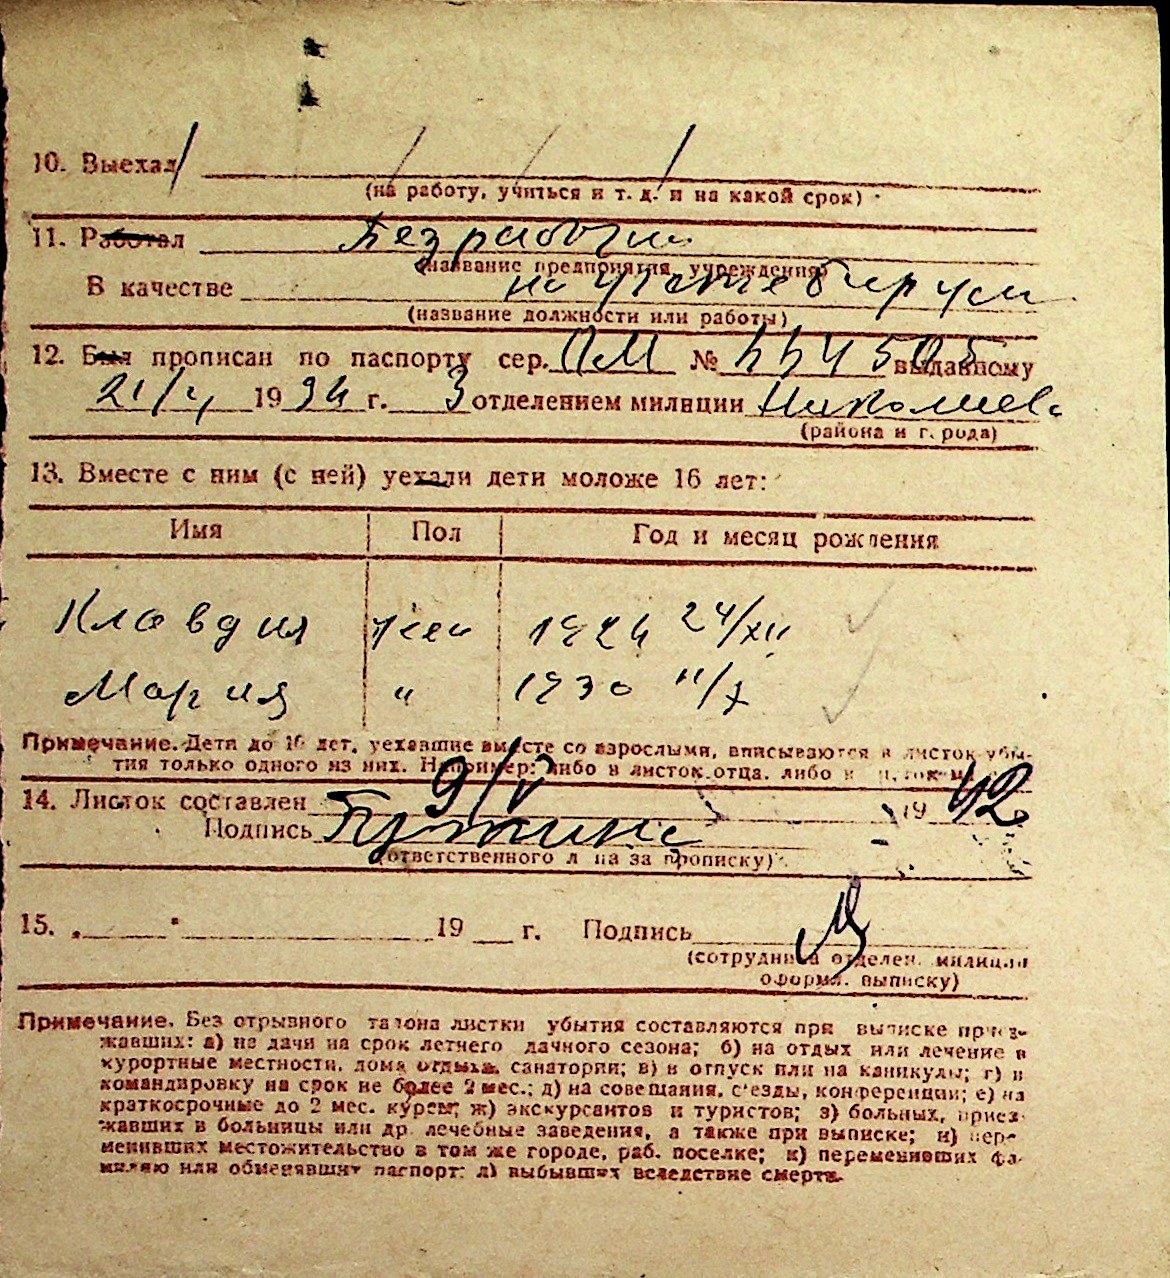 10. Выехал
(на работу, учиться и т. д. и на какой срок)
11. Работал Безработн.
(название предприятия, учреждения)
В качестве на учете биржи
(название должности или работы)
12. Был прописан по паспорту сер. ПМ № выданному
21/V 1934 г. 3 отделением милиции Николаев
(района и города)
13. Вместе с ним (с ней) уехали дети моложе 16 лет:
Имя Пол Год и месяц рождения
Клавдия жен 1924 24/XII
Мария " 1930 11/X
Примечание. Дети до 16 лет, уехавшие вместе со взрослыми, вписываются в листок убы-
тия только одного из них. Например: либо в листок отца, либо в листок м
14. Листок составлен 9/V 1942
Подпись
(ответственного лица за прописку)
15. „ " 19 г. Подпись
(сотрудника отделен. милиции
оформл. выписку)
Примечание. Без отрывного талона листки убытия составляются при выписке приез-
жавших: а) на дачи на срок летнего дачного сезона; б) на отдых или лечение в
курортные местности, дома отдыха, санатории; в) в отпуск или на каникулы; г) в
командировку на срок не более 2 мес.; д) на совещания, съезды, конференции; е) на
краткосрочные до 2 мес. курсы; ж) экскурсантов и туристов; з) больных, приез-
жавших в больницы или др. лечебные заведения, а также при выписке; и) пере-
менивших местожительство в том же городе, раб. поселке; к) переменивших фа-
милию или обменявших паспорт; л) выбывших вследствие смерти.